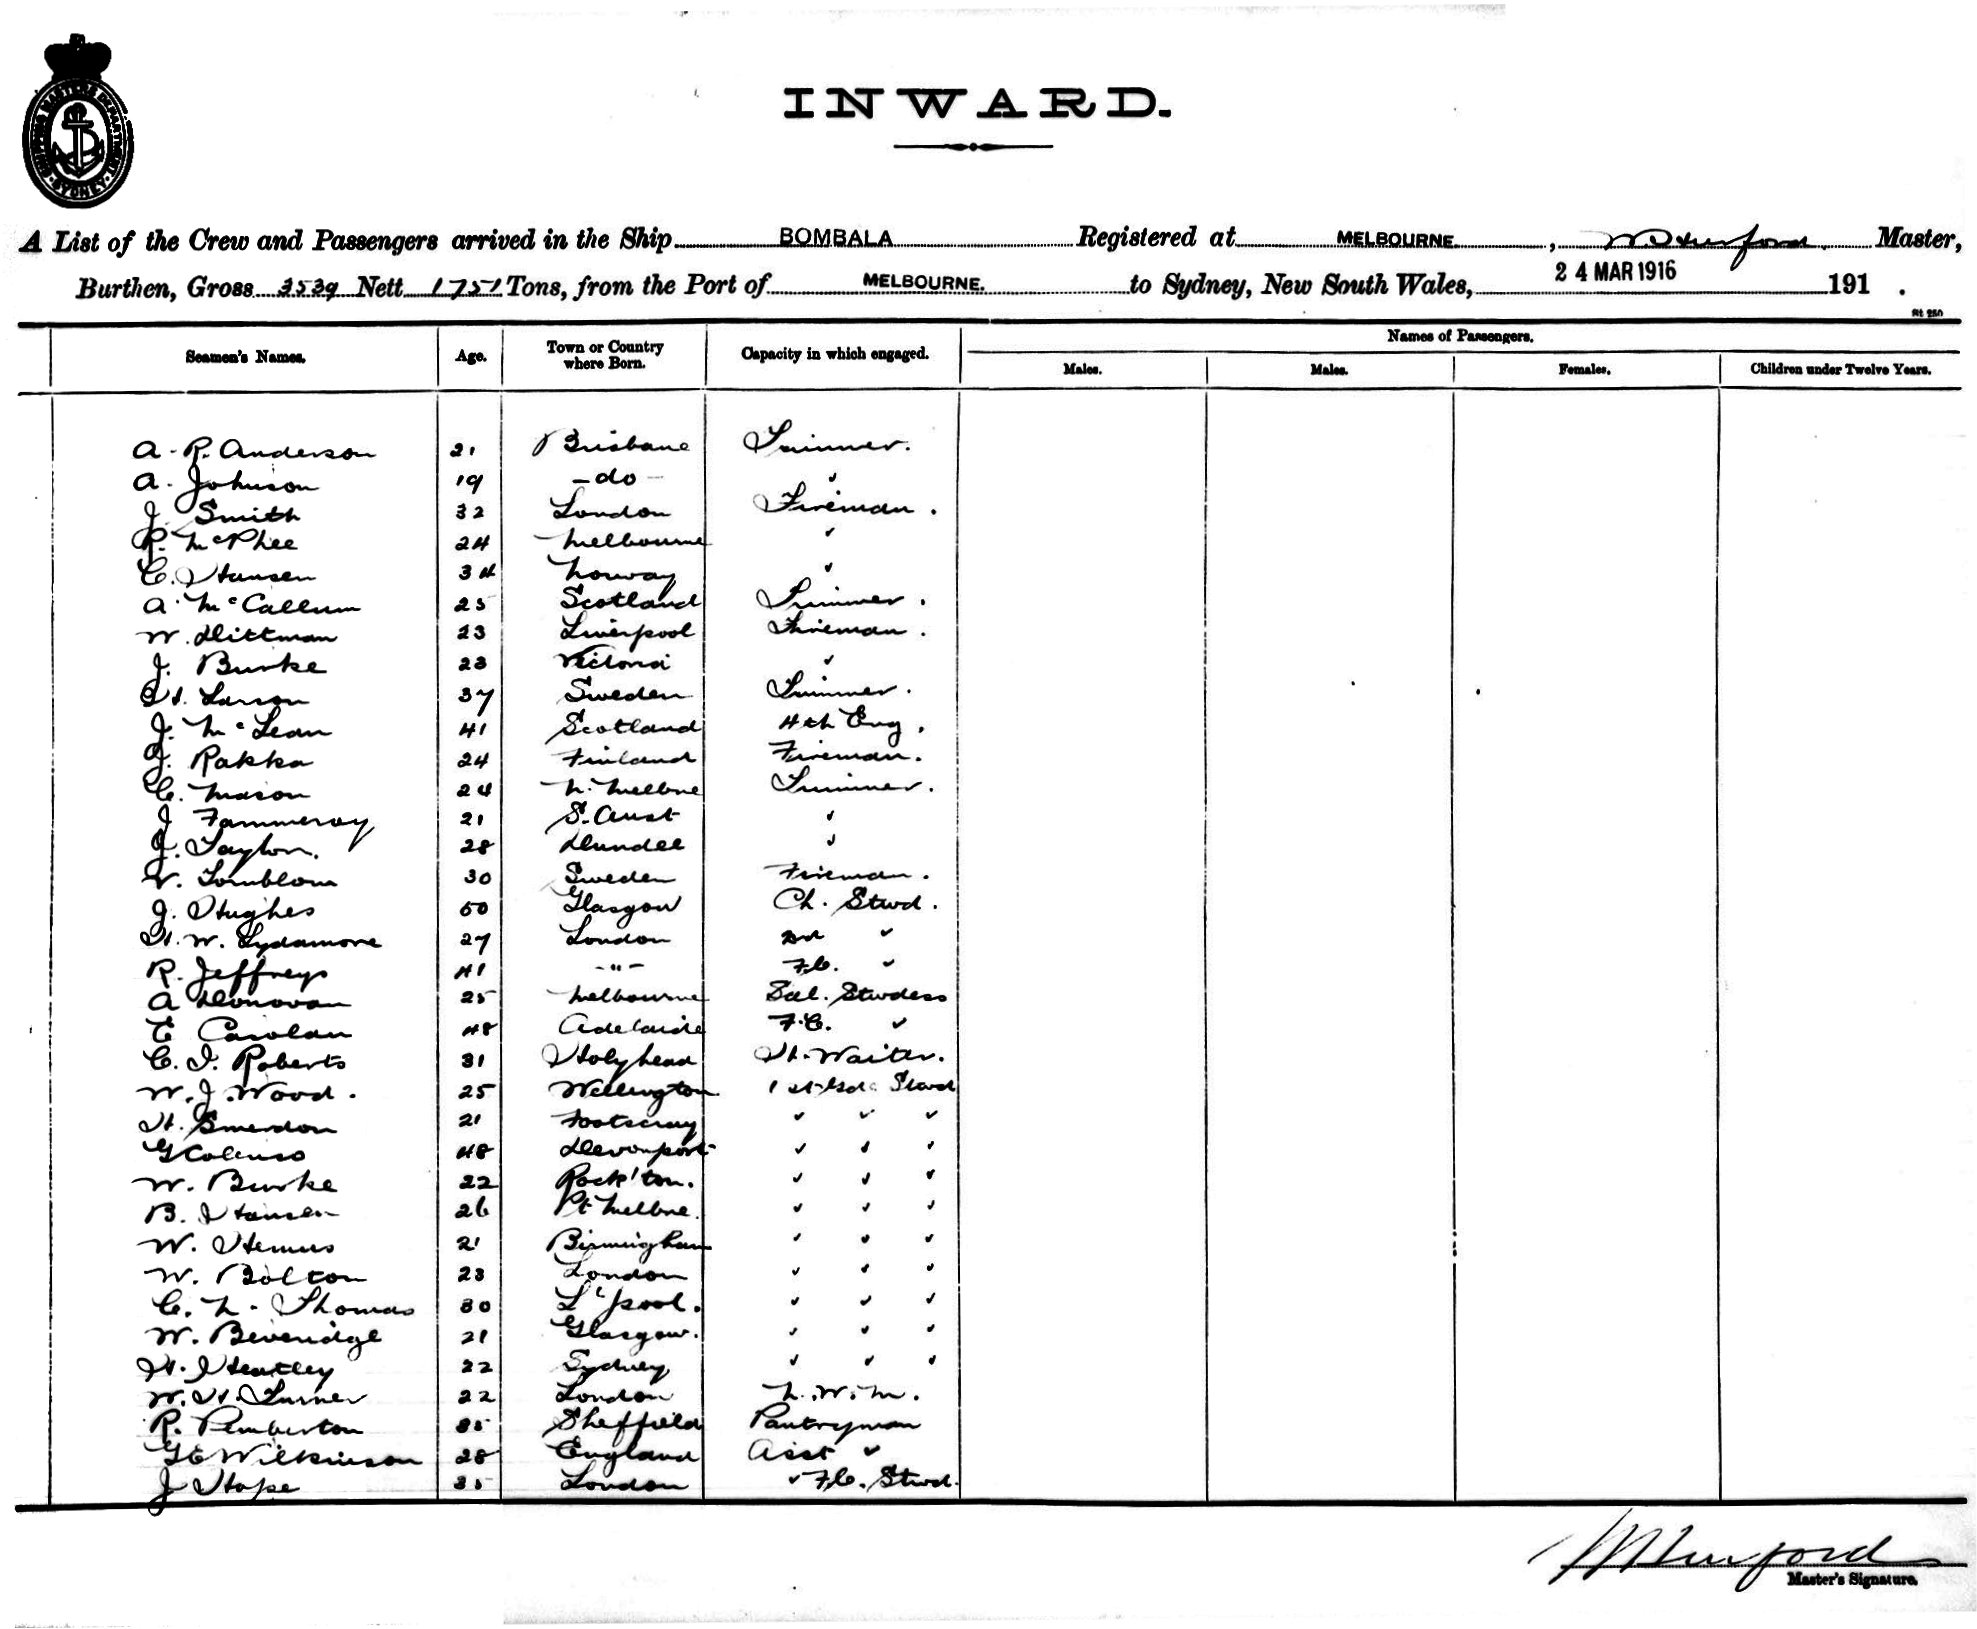 SHIPPING MASTERS DEPARTMENT SYDNEY
INWARD.
A List of the Crew and Passengers arrived in the Ship BOMBALA Registered at MELBOURNE, Master,
Burthen, Gross 3539 Nett 1751 Tons, from the Port of MELBOURNE. to Sydney, New South Wales, 24 MAR 1916 191 .
St 250
Seamen's Names. Age. Town or Country where Born. Capacity in which engaged. Names of Passengers.
Males. Males. Females. Children under Twelve Years.
A. R. Anderson 21 Brisbane Trimmer.
A. Johnson 19 - do - "
J. Smith 32 London Fireman.
R. McPhee 24 Melbourne "
C. Hansen 34 Norway "
A. McCallum 25 Scotland Trimmer.
W. Dittman 23 Liverpool Fireman.
J. Burke 23 Victoria "
H. Larson 37 Sweden Trimmer.
J. McLean 41 Scotland 4th Eng.
J. Rakka 24 Finland Fireman.
C. Mason 24 N. Melbne Trimmer.
J Fammeray 21 S. Aust "
J. Taylor. 28 Dundee "
V. Tornblom 30 Sweden Fireman.
J. Hughes 50 Glasgow Ch. Stwd.
H. W. Sydamore 27 London 2nd "
R. Jeffreys 41 - " - F.C. "
A Donovan 25 Melbourne Sal. Stwdess
E Carolan 48 Adelaide F.C. "
C. I. Roberts 31 Holyhead Hd. Waiter.
W. J. Wood. 25 Wellington 1st Gde Stwd
H. Smerdon 21 Footscray " " "
G Colenso 48 Devonport " " "
W. Burke 22 Rock'ton. " " "
B. Hansen 26 Pt Melbne. " " "
W. Hemus 21 Birmingham " " "
W. Bolton 23 London " " "
C. N. Thomas 30 L'pool. " " "
W. Beveridge 21 Glasgow. " " "
H. Heatley 22 Sydney " " "
W. H. Turner 22 London N.W.M.
R. Pemberton 35 Sheffield Pantryman
G E Wilkinson 28 England Asst "
J Hope 35 London " F.C. Stwd.
Master's Signature.